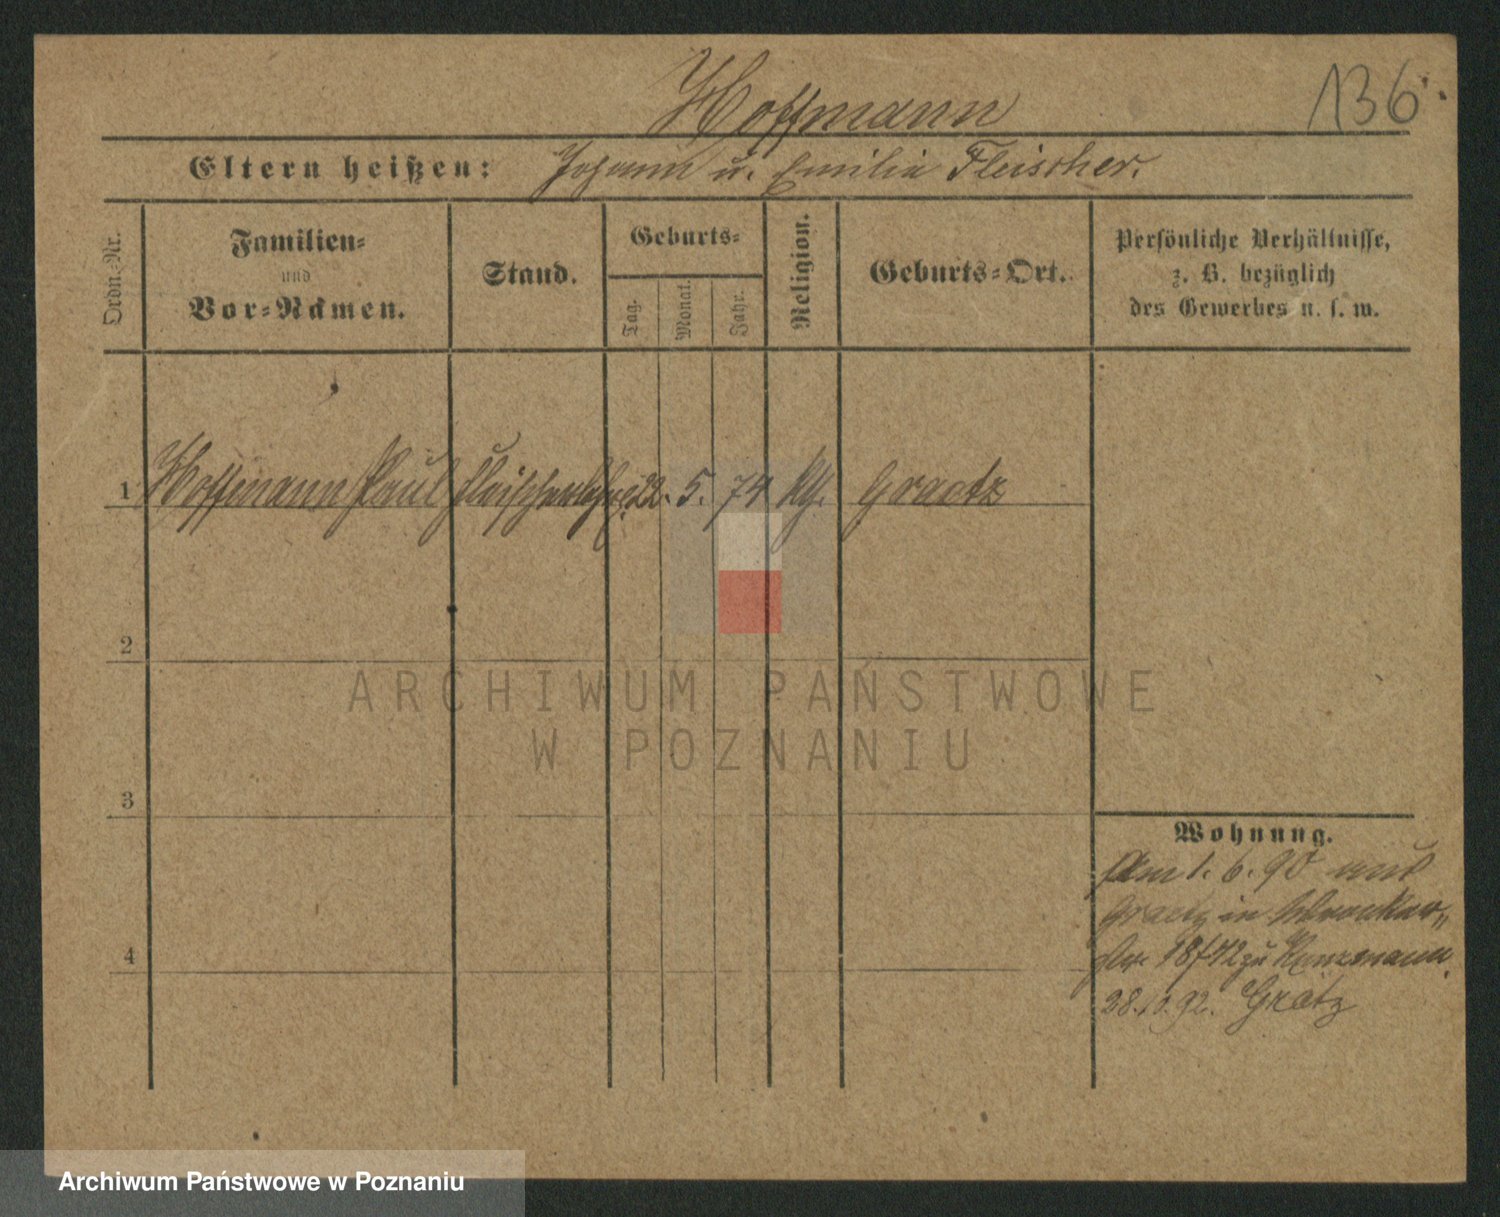 Hoffmann
136
Eltern heißen: Johann u. Emilia Fleischer.
Ordn.-Nr.
Familien-
und
Vor-Namen.
Stand.
Geburts-
Tag.
Monat.
Jahr.
Religion.
Geburts-Ort.
Persönliche Verhältnisse,
z. B. bezüglich
des Gewerbes u. s. w.
1 Hoffmann Paul Fleischerlehrl. 22. 5. 74 kth. Graetz
2
ARCHIWUM PAŃSTWOWE
W POZNANIU
3
Wohnung.
Am 1. 6. 90 aus
Graetz in
str. 18 zu Kunzmann.
4
28.10.92. Grätz
Archiwum Państwowe w Poznaniu